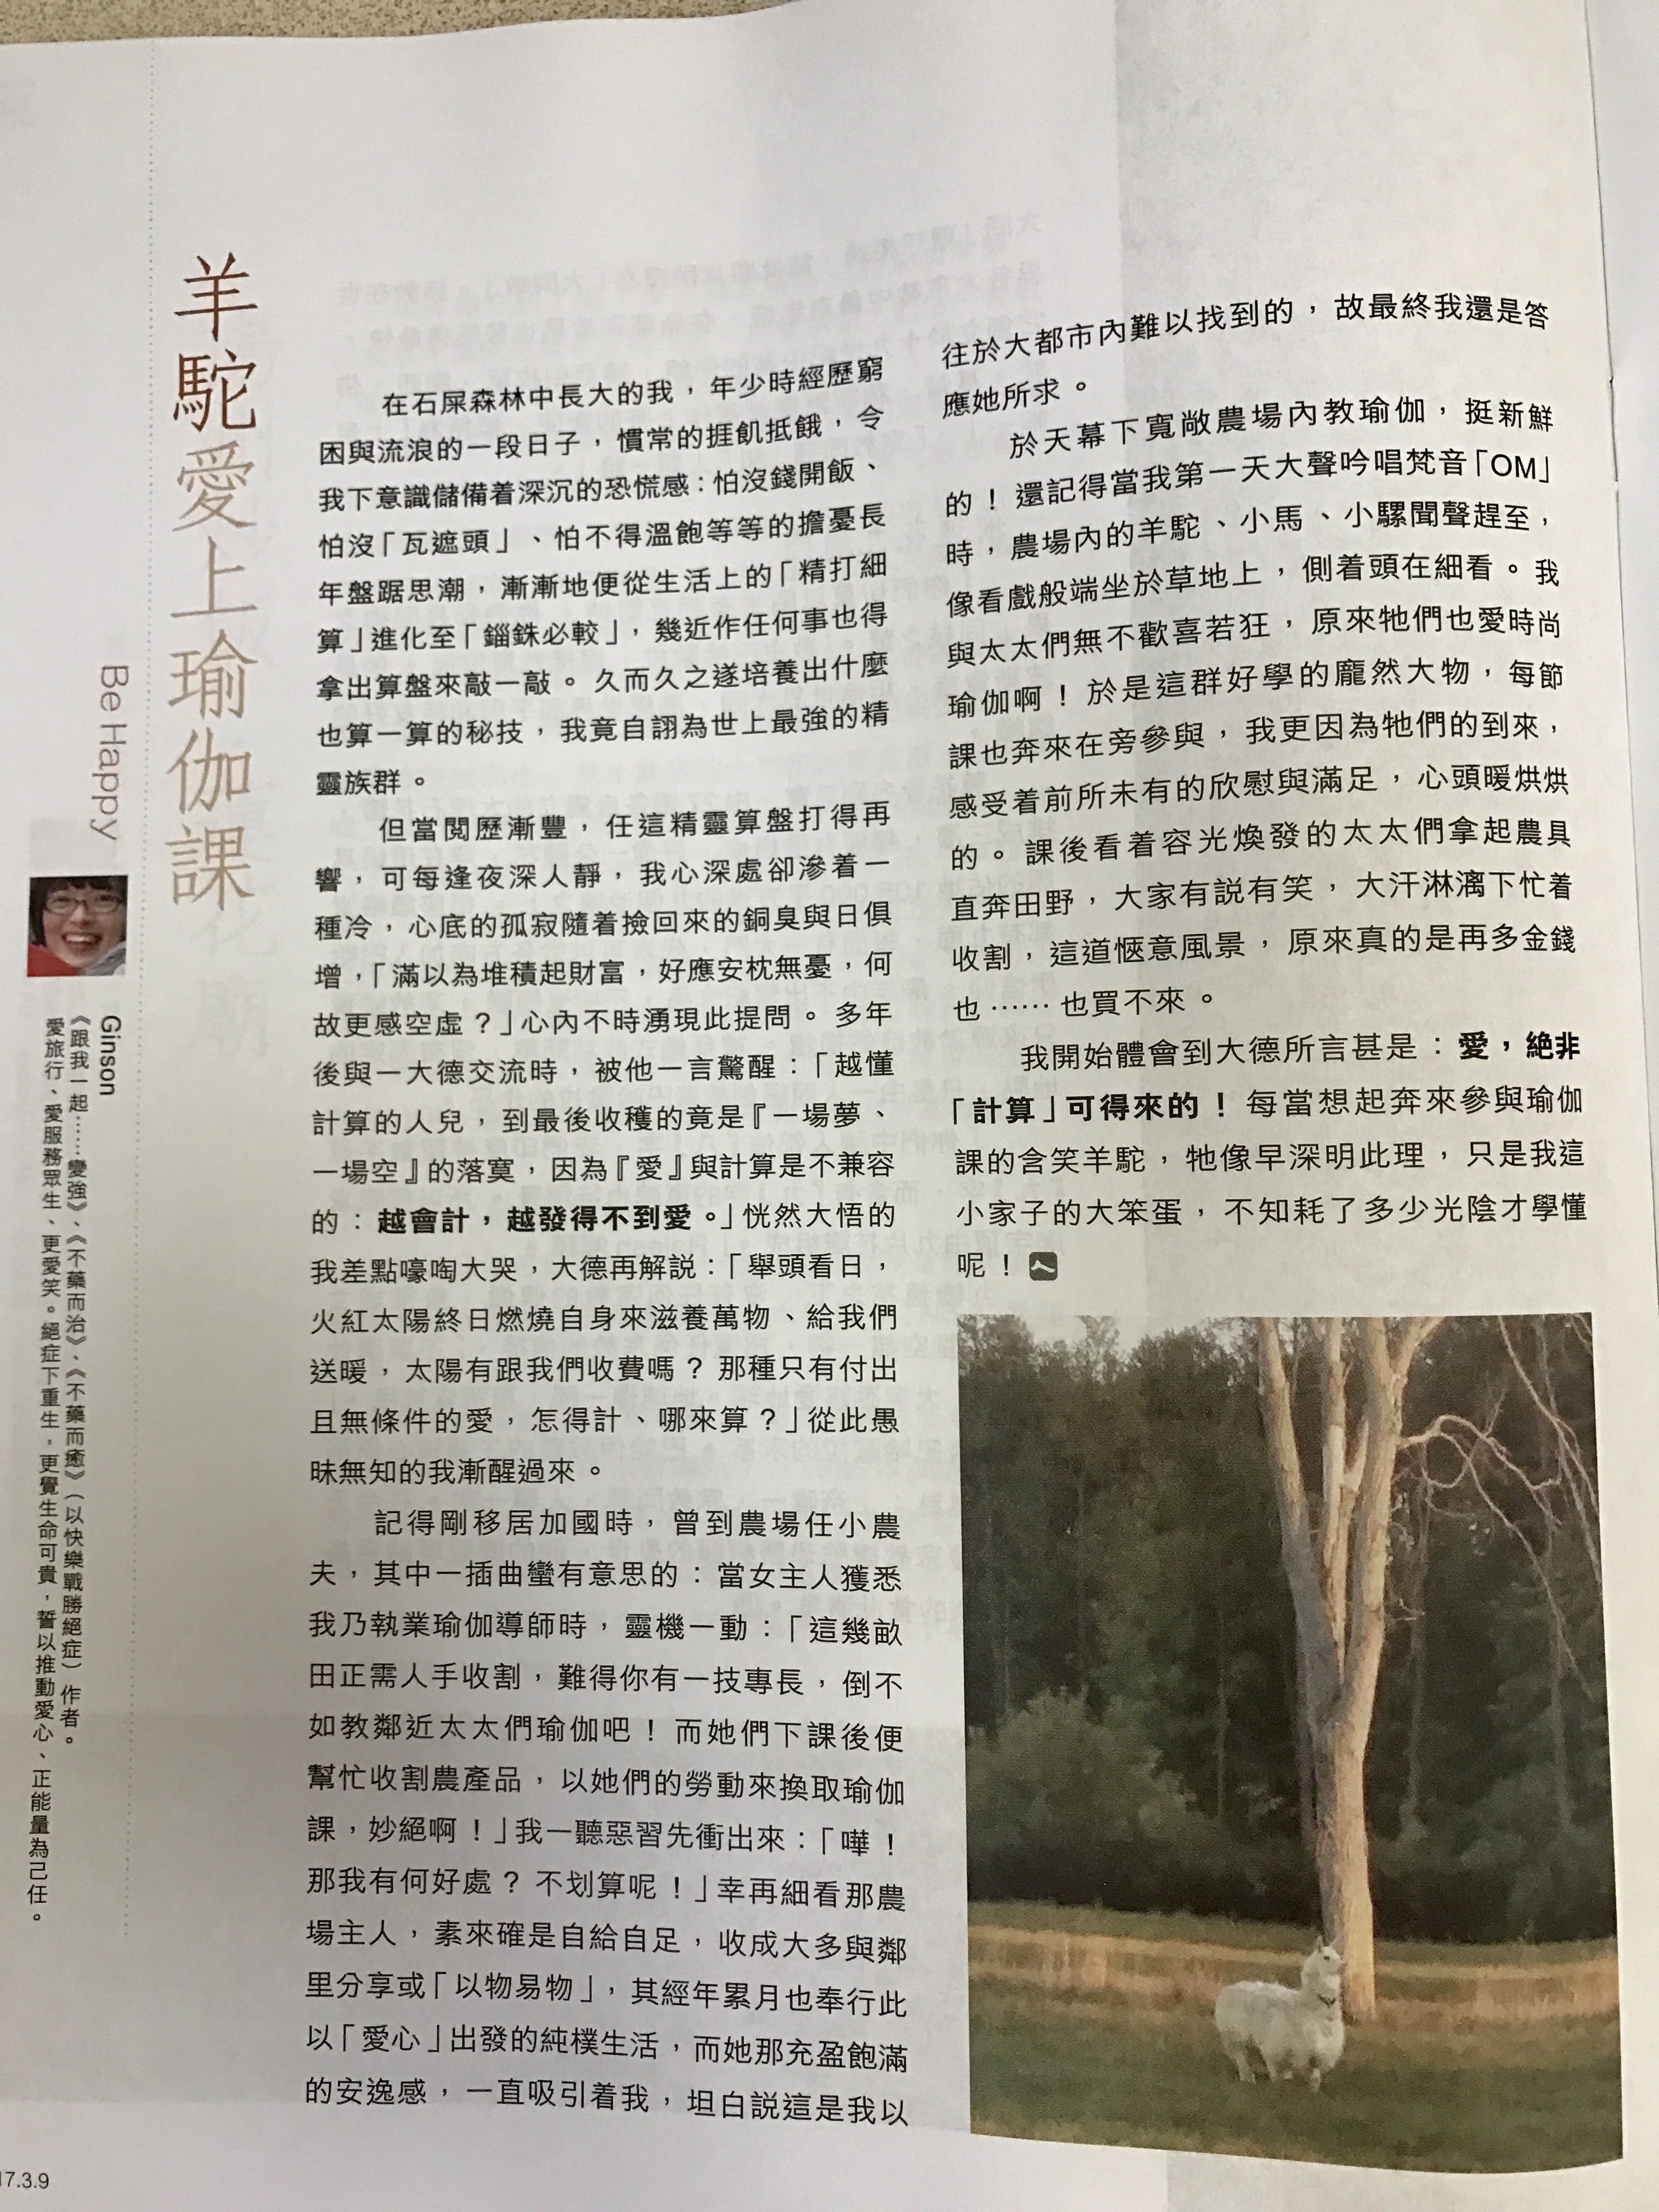 羊駝愛上瑜伽課
Be Happy
Ginson
《跟我一起……變強》、《不藥而治》、《不藥而癒》（以快樂戰勝絕症）作者。
愛旅行、愛服務眾生、更愛笑。絕症下重生，更覺生命可貴，誓以推動愛心、正能量為己任。
在石屎森林中長大的我，年少時經歷窮
困與流浪的一段日子，慣常的捱飢抵餓，令
我下意識儲備着深沉的恐慌感：怕沒錢開飯、
怕沒「瓦遮頭」、怕不得溫飽等等的擔憂長
年盤踞思潮，漸漸地便從生活上的「精打細
算」進化至「錙銖必較」，幾近作任何事也得
拿出算盤來敲一敲。久而久之遂培養出什麼
也算一算的秘技，我竟自詡為世上最強的精
靈族群。
但當閱歷漸豐，任這精靈算盤打得再
響，可每逢夜深人靜，我心深處卻滲着一
種冷，心底的孤寂隨着撿回來的銅臭與日俱
增，「滿以為堆積起財富，好應安枕無憂，何
故更感空虛？」心內不時湧現此提問。多年
後與一大德交流時，被他一言驚醒：「越懂
計算的人兒，到最後收穫的竟是『一場夢、
一場空』的落寞，因為『愛』與計算是不兼容
的：越會計，越發得不到愛。」恍然大悟的
我差點嚎啕大哭，大德再解説：「舉頭看日，
火紅太陽終日燃燒自身來滋養萬物、給我們
送暖，太陽有跟我們收費嗎？那種只有付出
且無條件的愛，怎得計、哪來算？」從此愚
昧無知的我漸醒過來。
記得剛移居加國時，曾到農場任小農
夫，其中一插曲蠻有意思的：當女主人獲悉
我乃執業瑜伽導師時，靈機一動：「這幾畝
田正需人手收割，難得你有一技專長，倒不
如教鄰近太太們瑜伽吧！而她們下課後便
幫忙收割農產品，以她們的勞動來換取瑜伽
課，妙絕啊！」我一聽惡習先衝出來：「嘩！
那我有何好處？不划算呢！」幸再細看那農
場主人，素來確是自給自足，收成大多與鄰
里分享或「以物易物」，其經年累月也奉行此
以「愛心」出發的純樸生活，而她那充盈飽滿
的安逸感，一直吸引着我，坦白説這是我以
往於大都市內難以找到的，故最終我還是答
應她所求。
於天幕下寬敞農場內教瑜伽，挺新鮮
的！還記得當我第一天大聲吟唱梵音「OM」
時，農場內的羊駝、小馬、小騾聞聲趕至，
像看戲般端坐於草地上，側着頭在細看。我
與太太們無不歡喜若狂，原來牠們也愛時尚
瑜伽啊！於是這群好學的龐然大物，每節
課也奔來在旁參與，我更因為牠們的到來，
感受着前所未有的欣慰與滿足，心頭暖烘烘
的。課後看着容光煥發的太太們拿起農具
直奔田野，大家有説有笑，大汗淋漓下忙着
收割，這道愜意風景，原來真的是再多金錢
也……也買不來。
我開始體會到大德所言甚是：愛，絕非
「計算」可得來的！每當想起奔來參與瑜伽
課的含笑羊駝，牠像早深明此理，只是我這
小家子的大笨蛋，不知耗了多少光陰才學懂
呢！
17.3.9